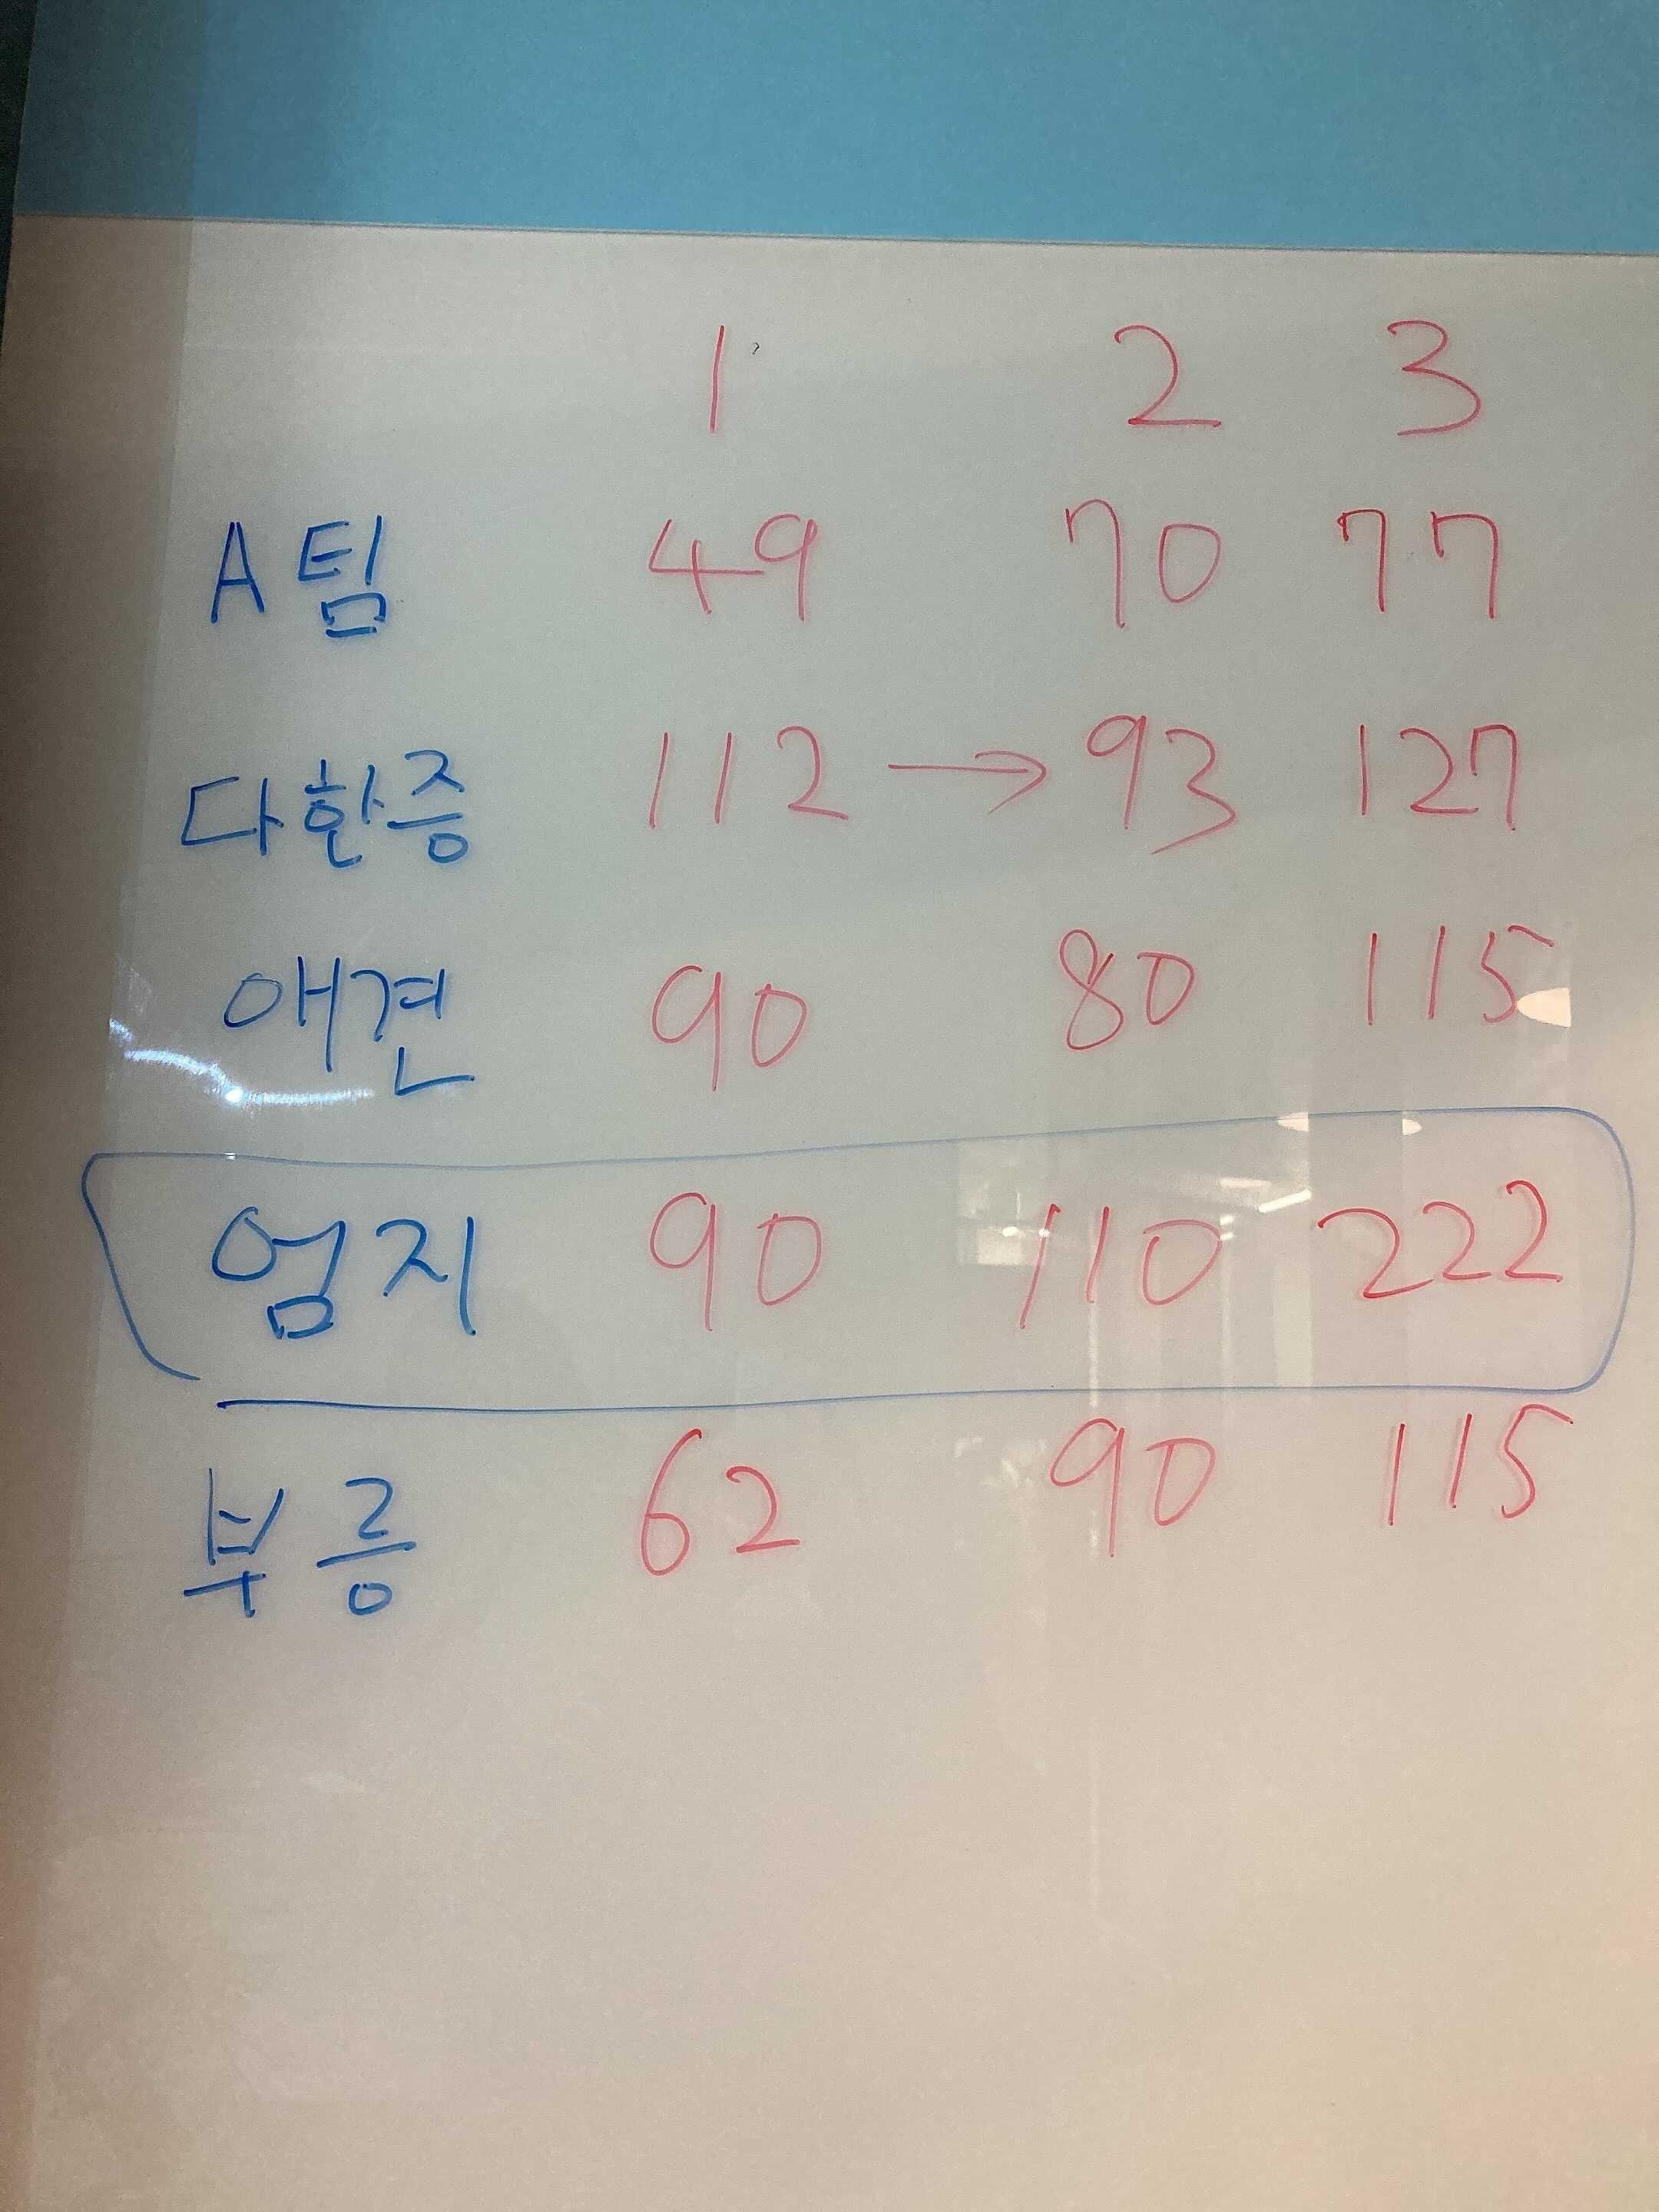 1 2 3
A팀 49 70 77
다한증 112 → 93 127
애견 90 80 115
엄지 90 110 222
부릉 62 90 115